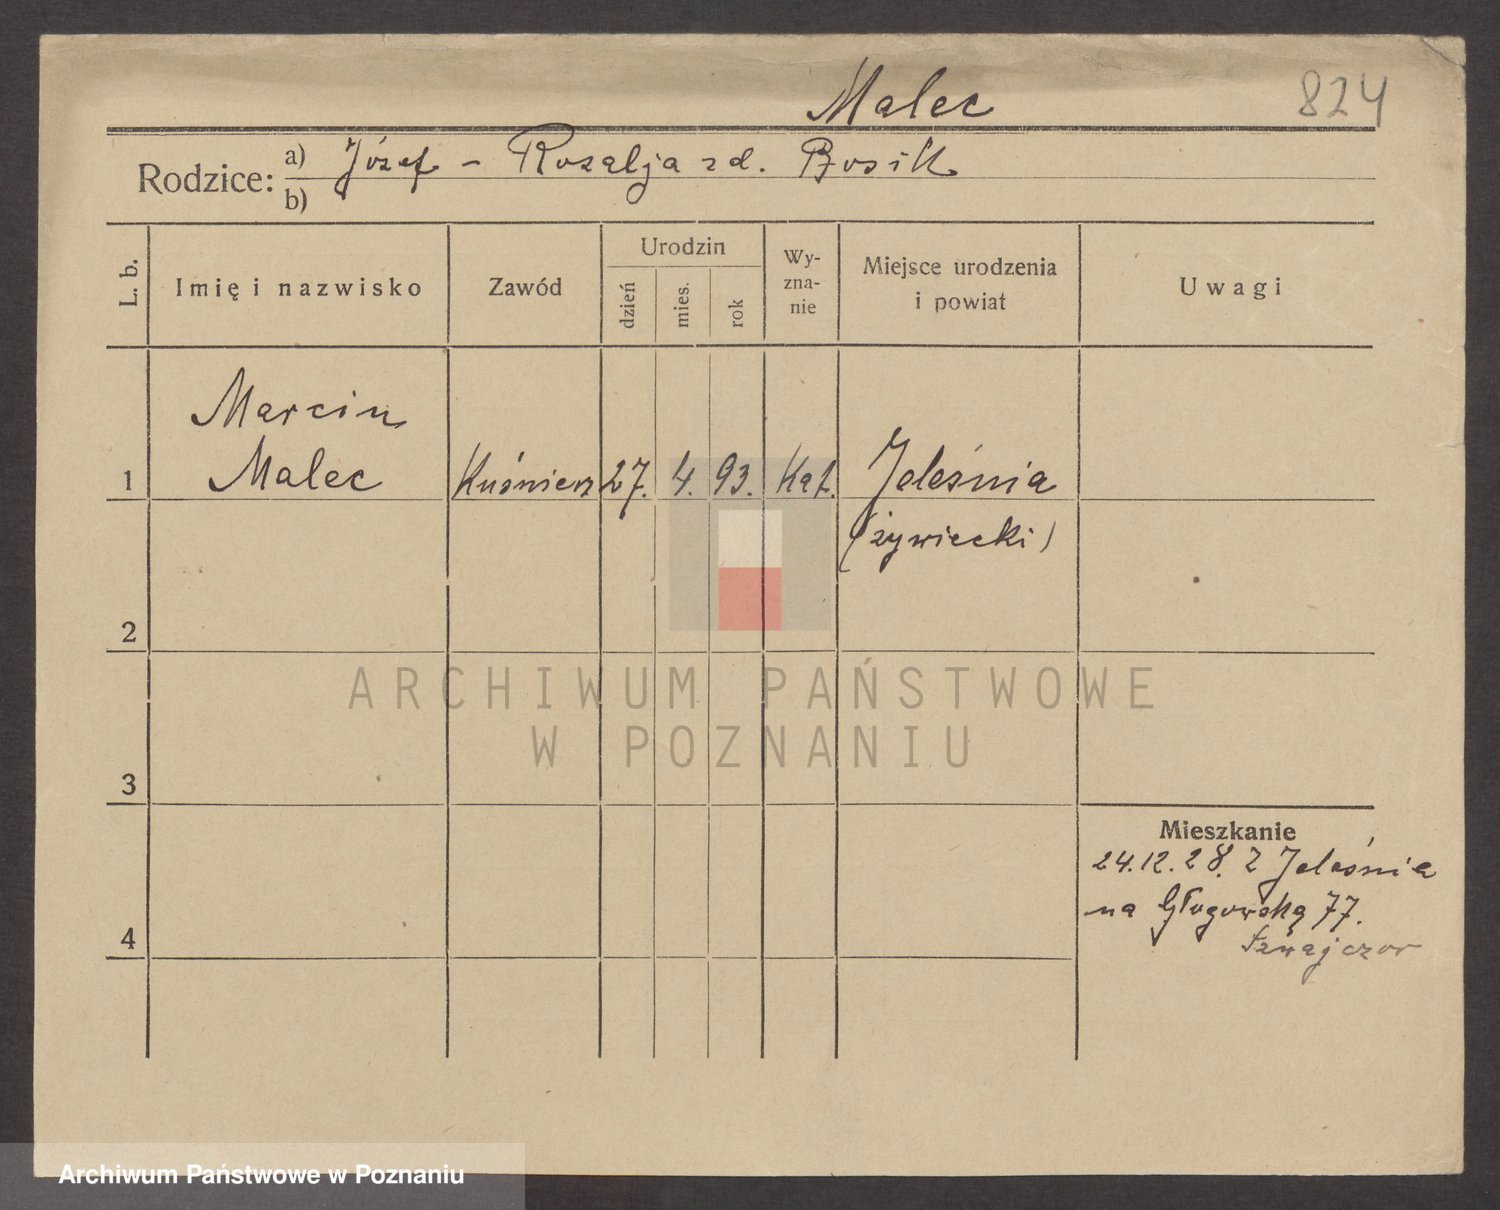 Malec
824
Rodzice: a) Józef - Rozalja zd. Bosik
b)
L. b.
Imię i nazwisko
Zawód
Urodzin
dzień
mies.
rok
Wy-
zna-
nie
Miejsce urodzenia
i powiat
Uwagi
Marcin
1 Malec Kuśnierz 27. 4. 93. Kat. Jeleśnia
(żywiecki)
2
ARCHIWUM PAŃSTWOWE
W POZNANIU
3
Mieszkanie
24.12.28. z Jeleśnia
na Głogowską 77.
4
Archiwum Państwowe w Poznaniu